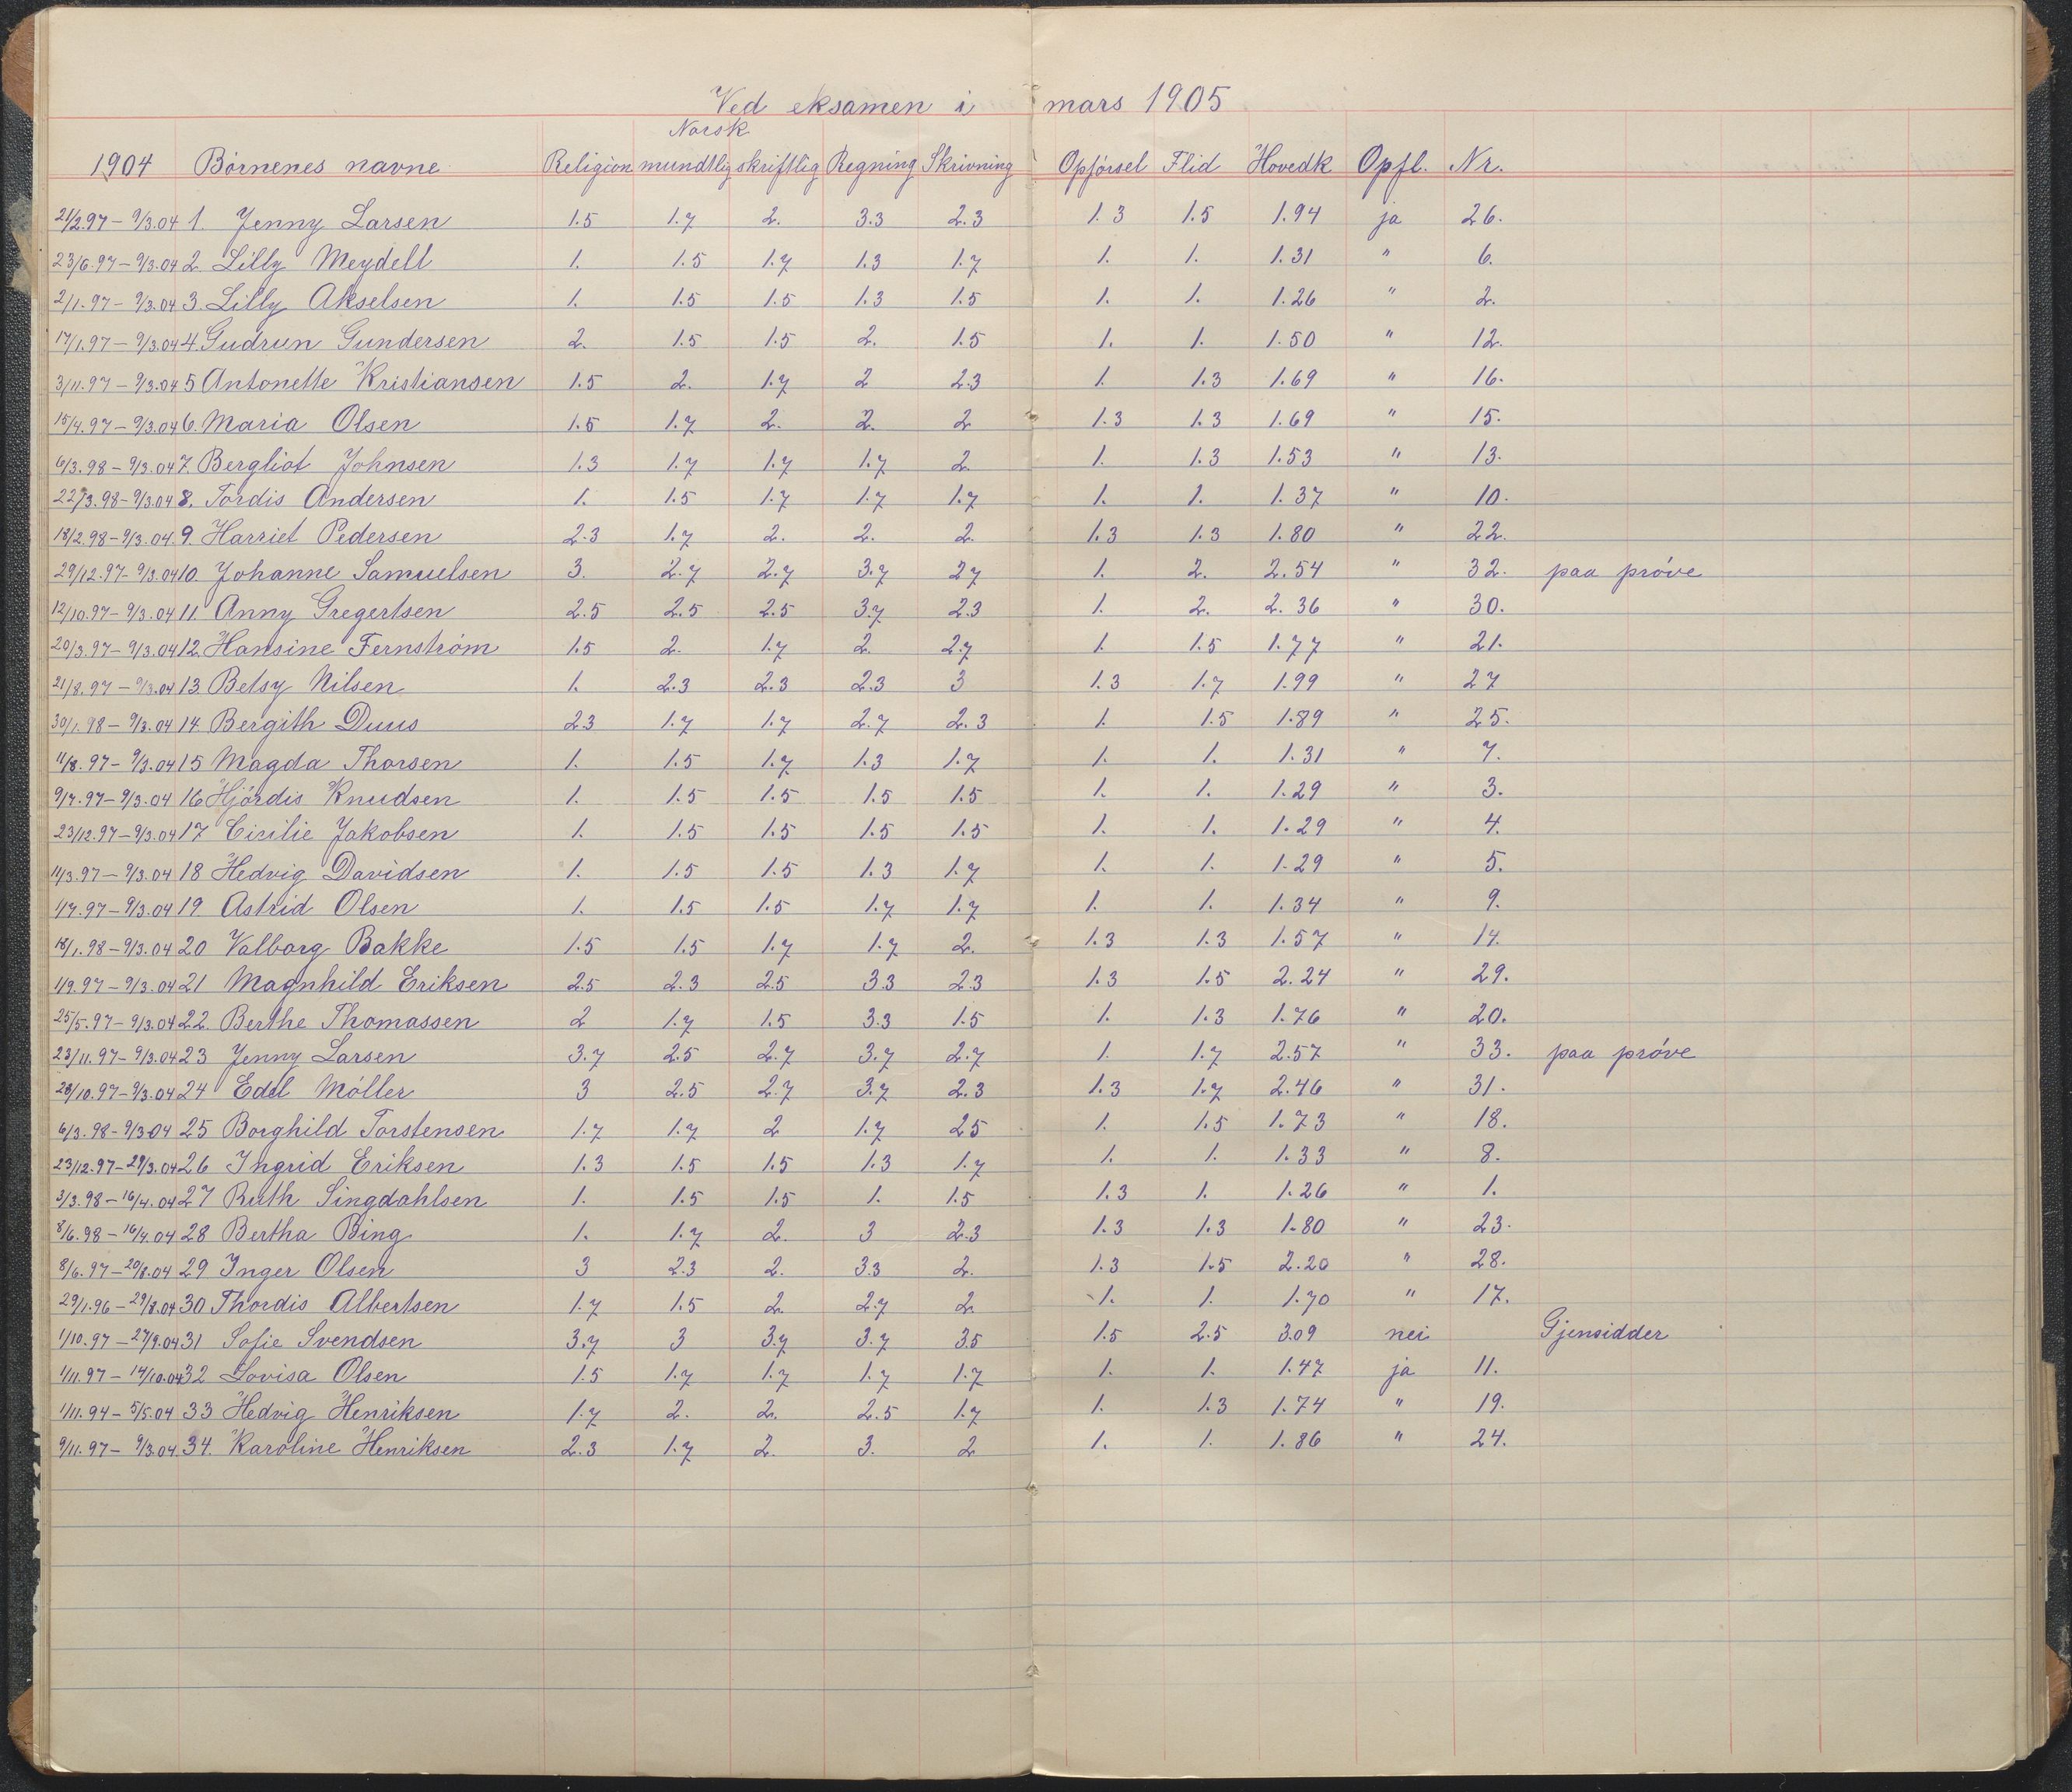 Ved eksamen i mars 1905
Norsk
1904 Börnenes navne Religion mundtlig skriftlig Regning Skrivning Opförsel Flid Hovedk Opfl. Nr.
21/2.97 – 9/3.04 1. Jenny Larsen 1.5 1.7 2. 3.3 2.3 1.3 1.5 1.94 ja 26.
23/6.97 – 9/3.04 2. Lilly Meydell 1. 1.5 1.7 1.3 1.7 1. 1. 1.31 " 6.
2/1.97 – 9/3.04 3. Lilly Akselsen 1. 1.5 1.5 1.3 1.5 1. 1. 1.26 " 2.
17/1.97 – 9/3.04 4. Gudrun Gundersen 2. 1.5 1.5 2. 1.5 1. 1. 1.50 " 12.
3/11.97 – 9/3.04 5 Antonette Kristiansen 1.5 2. 1.7 2 2.3 1. 1.3 1.69 " 16.
15/4.97 – 9/3.04 6. Maria Olsen 1.5 1.7 2. 2. 2 1.3 1.3 1.69 " 15.
6/3.98 – 9/3.04 7. Bergliot Johnsen 1.3 1.7 1.7 1.7 2. 1. 1.3 1.53 " 13.
22/3.98 – 9/3.04 8. Tordis Andersen 1. 1.5 1.7 1.7 1.7 1. 1. 1.37 " 10.
18/2.98 – 9/3.04. 9. Harriet Pedersen 2.3 1.7 2. 2. 2. 1.3 1.3 1.80 " 22.
29/12.97 – 9/3.04 10. Johanne Samuelsen 3. 2.7 2.7 3.7 27 1. 2. 2.54 " 32. paa pröve
12/10.97 – 9/3.04 11. Anny Gregertsen 2.5 2.5 2.5 3.7 2.3 1. 2. 2.36 " 30.
20/3.97 – 9/3.04 12. Hansine Fernström 1.5 2. 1.7 2. 2.7 1. 1.5 1.77 " 21.
21/8.97 – 9/3.04 13. Betsy Nilsen 1. 2.3 2.3 2.3 3 1.3 1.7 1.99 " 27
30/1.98 – 9/3.04 14. Bergith Duus 23 1.7 1.7 2.7 2.3 1. 1.5 1.89 " 25.
11/8.97 – 9/3.04 15 Magda Thorsen 1. 1.5 1.7 1.3 1.7 1. 1. 1.31 " 7.
9/7.97 – 9/3.04 16 Hjördis Knudsen 1. 1.5 1.5 1.5 1.5 1. 1. 1.29 " 3.
23/12.97 – 9/3.04 17 Cicilie Jakobsen 1. 1.5 1.5 1.5 1.5 1. 1. 1.29 " 4.
11/3.97 – 9/3.04 18 Hedvig Davidsen 1. 1.5 1.5 1.3 1.7 1. 1. 1.29 " 5.
1/7.97 – 9/3.04 19. Astrid Olsen 1. 1.5 1.5 1.7 1.7 1. 1. 1.34 " 9.
18/1.98 – 9/3.04 20 Valborg Bakke 1.5 1.5 1.7 1.7 2. 1.3 1.3 1.57 " 14.
1/9.97 – 9/3.04 21 Magnhild Eriksen 25 2.3 25 33 23 1.3 1.5 2.24 " 29.
25/5.97 – 9/3.04 22. Berthe Thomassen 2 1.7 1.5 3.3 1.5 1. 1.3 1.76 " 20.
23/11.97 – 9/3.04 23 Jenny Larsen 3.7 25 2.7 3.7 2.7 1. 1.7 2.57 " 33. paa pröve
28/10.97 – 9/3.04 24 Edel Möller 3 2.5 2.7 3.7 2.3 1.3 1.7 2.46 " 31.
6/3.98 – 9/3 04 25 Borghild Torstensen 1.7 1.7 2 1.7 25 1. 1.5 1.73 " 18.
23/12.97 – 29/3.04 26 Ingrid Eriksen 1.3 1.5 1.5 1.3 1.7 1. 1. 1.33 " 8.
3/3.98 – 16/4.04 27 Ruth Singdahlsen 1. 1.5 1.5 1. 1.5 1.3 1. 1.26 " 1.
8/6.98 – 16/4.04 28 Bertha Bing 1. 1.7 2. 3 2.3 1.3 1.3 1.80 " 23.
8/6.97 – 20/8.04 29 Inger Olsen 3 2.3 2. 3.3 2. 1.3 1.5 2.20 " 28.
29/1.96 – 29/8.04 30 Thordis Albertsen 1.7 1.5 2. 2.7 2. 1. 1. 1.70 " 17.
1/10.97 – 27/9.04 31 Sofie Svendsen 3.7 3 3.7 3.7 35 1.5 2.5 3.09 nei Gjensidder
1/11.97 – 14/10.04 32 Lovisa Olsen 1.5 1.7 1.7 1.7 1.7 1. 1. 1.47 ja 11.
1/11.94 – 5/5.04 33 Hedvig Henriksen 1.7 2. 2. 2.5 1.7 1. 1.3 1.74 " 19.
9/11.97 – 9/3.04. 34. Karoline Henriksen 2.3 1.7 2. 3. 2 1. 1. 1.86 " 24.